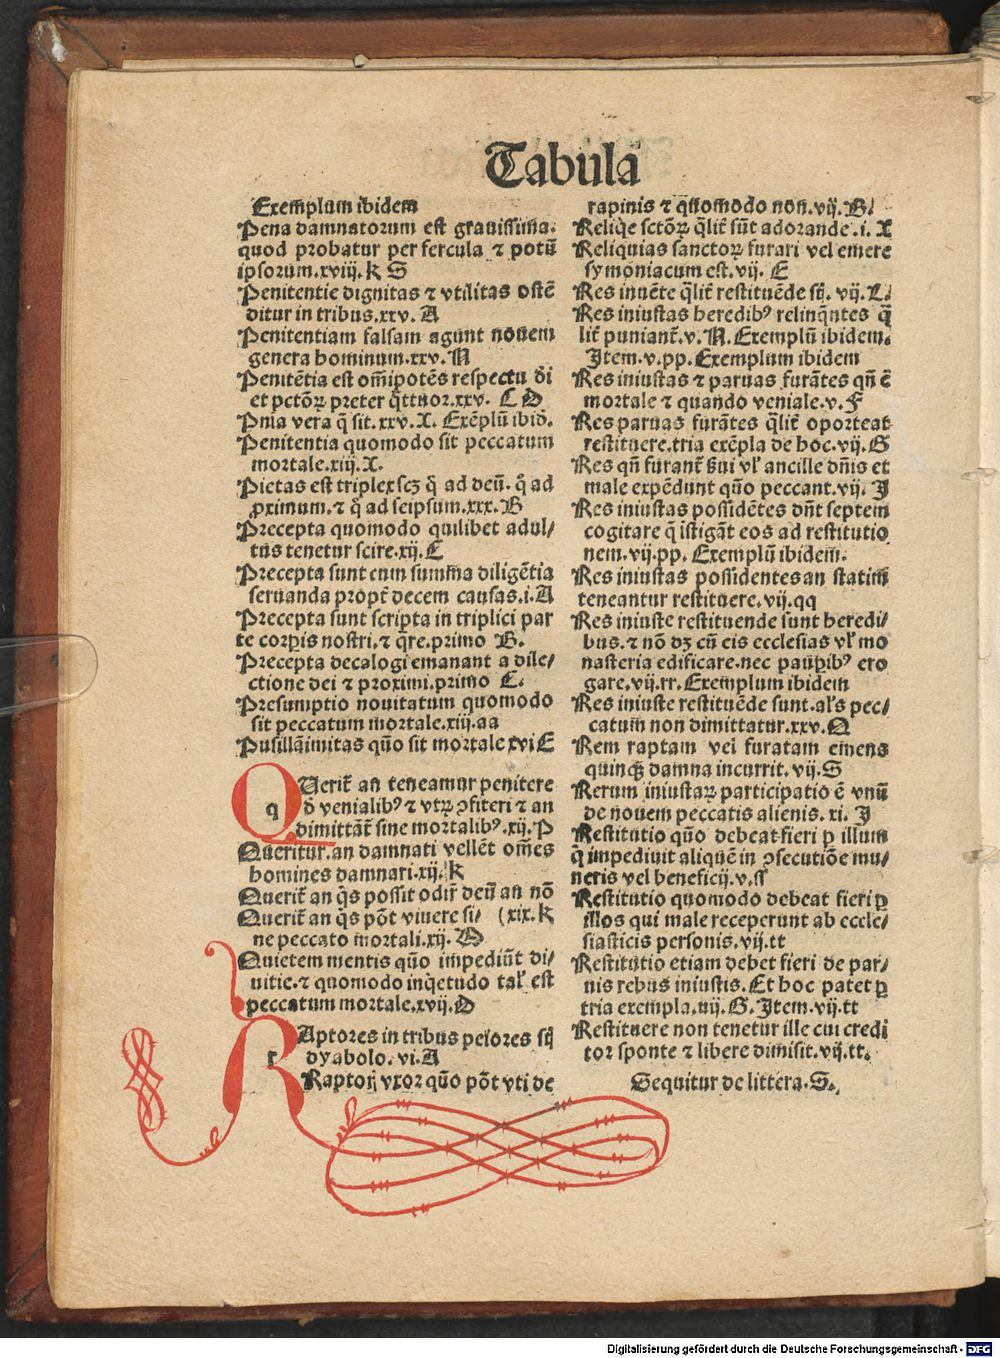 Tabula
Exemplum ibidem
Pena damnatorum est grauissima.
quod probatur per fercula ⁊ potū
ipsorum.xviij.K S
Penitentie dignitas ⁊ vtilitas ostē
ditur in tribus.xxv.A
Penitentiam falsam agunt nouem
genera hominum.xxv.N
Penitētia est om̄ipotēs respectu d̄i
et pctōꝝ preter q̄ttuor.xxv. C D
Pn̄ia vera q̄ sit.xxv.X. Exēplū ibid.
Penitentia quomodo sit peccatum
mortale.xiij.X.
Pietas est triplex scꝫ q̄ ad deū. q̄ ad
ꝓximum.⁊ q̄ ad seipsum.xxx.B
Precepta quomodo quilibet adul⸗
tus tenetur scire.xij.E
Precepta sunt cum summa diligētia
seruanda propt̄ decem causas.i.A
Precepta sunt scripta in triplici par
te corꝑis nostri.⁊ q̄re.primo B.
Precepta decalogi emanant a dile⸗
ctione dei ⁊ proximi.primo C.
Presumptio nouitatum quomodo
sit peccatum mortale.xiij.aa
Pusillāimitas quō sit mortale xvi E
QUerit̄ an teneamur penitere
q d̄ venialibꝰ ⁊ vtꝝ ꝯfiteri ⁊ an
dimittāt̄ sine mortalibꝰ.xij.P
Queritur.an damnati vellēt om̄es
homines damnari.xij.K
Querit̄ an q̄s possit odir̄ deū an nō
Querit̄ an q̄s pōt viuere si⸗ (xix.K
ne peccato mortali.xij.
Quietem mentis quō impediūt di⸗
uitie.⁊ quomodo inq̄etudo tal̄ est
peccatum mortale.xvij.O
RAptores in tribus peiores sūt
r dyabolo.vi.A
Raptorū vxor quō pōt vti de
rapinis ⁊ qn̄omodo non.vij.B.
Reliq̄e sctōꝝ q̄lit̄ sūt adorande.i.X
Reliquias sanctoꝝ furari vel emere
symoniacum est.vij. E
Res inuēte q̄lit̄ restituēde sūt. vij.L.
Res iniustas heredibꝰ relinq̄ntes q̄
lit̄ puniant̄.v.N.Exemplū ibidem.
Item.v.pp.Exemplum ibidem
Res iniustas ⁊ paruas furātes qn̄ ē
mortale ⁊ quando veniale.v.F
Res paruas furātes q̄lit̄ oporteat
restituere.tria exēpla de hoc.vij.G
Res qn̄ furant̄ ẜui vl̄ ancille dn̄is et
male expēdunt quō peccant.vij.I
Res iniustas possidētes dn̄t septem
cogitare q̄ īstigāt eos ad restitutio
nem.vij.pp. Exemplū ibidem.
Res iniustas possidentes an statim
teneantur restituere.vij.qq
Res iniuste restituende sunt heredi⸗
bus.⁊ nō dꝫ cū eis ecclesias vl̄ mo
nasteria edificare.nec pauꝑibꝰ ero
gare.vij.rr.Exemplum ibidem
Res iniuste restituēde sunt.al̄s pec⸗
catum non dimittatur.xxv.Q
Rem raptam vel furatam emens
quinqꝫ damna incurrit.vij.S
Rerum iniustaꝝ participatio ē vnū
de nouem peccatis alienis.xi.I
Restitutio quō debeat fieri ꝑ illum
q̄ impediuit aliquē in ꝓsecutiōe mu⸗
neris vel beneficij.v.ss
Restitutio quomodo debeat fieri ꝑ
illos qui male receperunt ab eccle⸗
siasticis personis.vij.tt
Restitutio etiam debet fieri de par⸗
uis rebus iniustis.Et hoc patet ꝑ
tria exempla.vij.G.Item.vij.tt
Restituere non tenetur ille cui credi
tor sponte ⁊ libere dimisit.vij.tt.
Sequitur de littera.S.
Digitalisierung gefördert durch die Deutsche Forschungsgemeinschaft - DFG